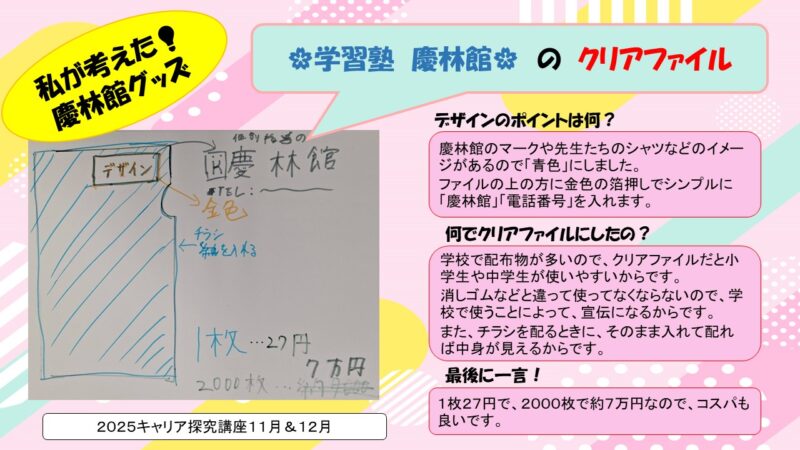 私が考えた!
慶林館グッズ
✿学習塾 慶林館✿ の クリアファイル
個別指導の
慶林館
TEL:
デザイン
金色
チラシ
を入れる
1枚…27円
7万円
2000枚…
2025キャリア探究講座11月&12月
デザインのポイントは何?
慶林館のマークや先生たちのシャツなどのイメ
ージがあるので「青色」にしました。
ファイルの上の方に金色の箔押しでシンプルに
「慶林館」「電話番号」を入れます。
何でクリアファイルにしたの?
学校で配布物が多いので、クリアファイルだと小
学生や中学生が使いやすいからです。
消しゴムなどと違って使ってなくならないので、学
校で使うことによって、宣伝になるからです。
また、チラシを配るときに、そのまま入れて配れ
ば中身が見えるからです。
最後に一言!
1枚27円で、2000枚で約7万円なので、コスパも
良いです。